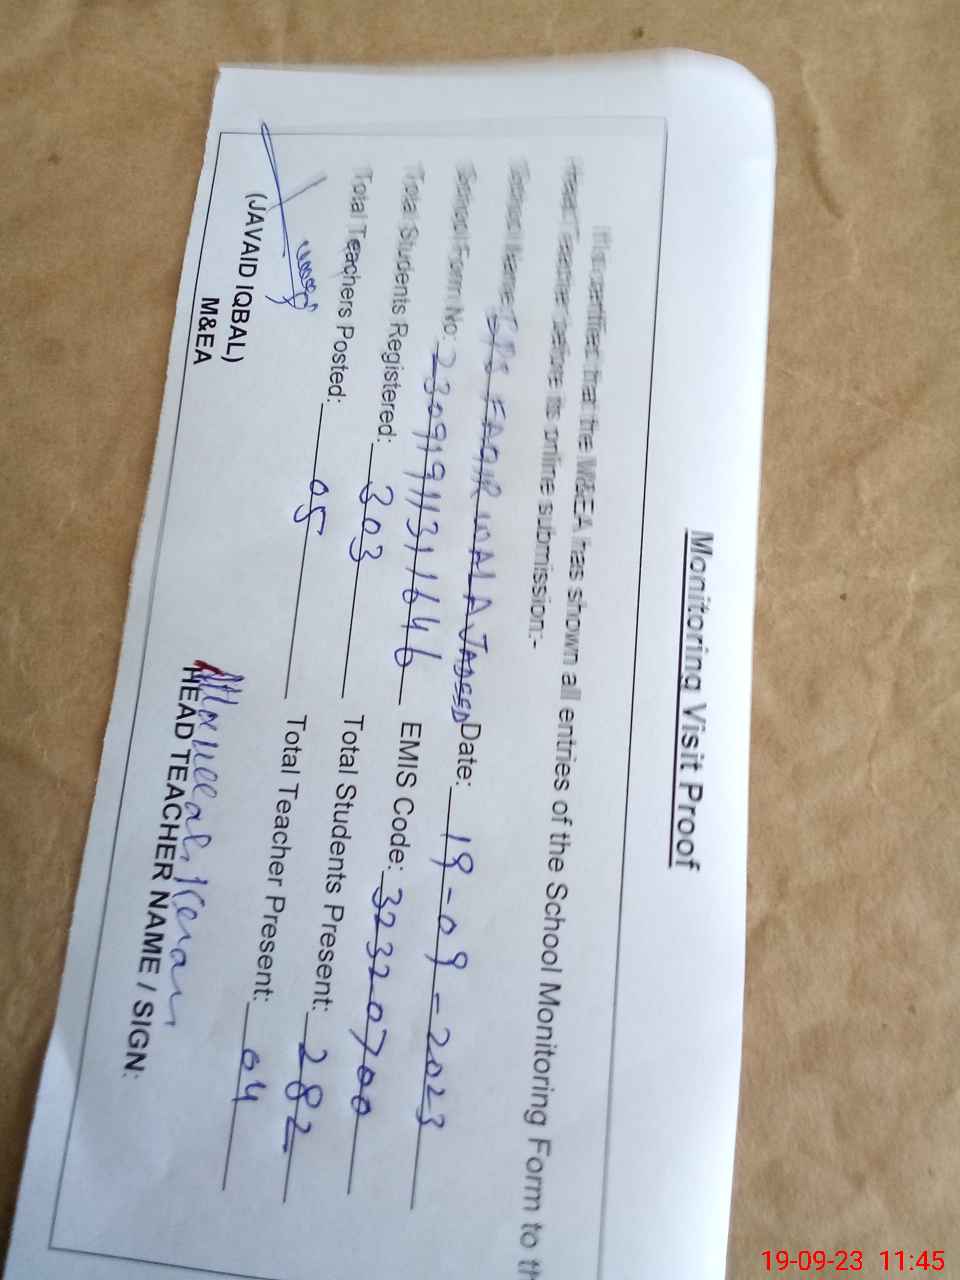 Monitoring Visit Proof
It is certified that the M&EA has shown all entries of the School Monitoring Form to th
Head Teacher before its online submission:-
School Name: GPS FAQIR WALA JADEED Date: 19-09-2023
School Form No: 23091911311646 EMIS Code: 32320700
Total Students Registered: 303 Total Students Present: 282
Total Teachers Posted: 05 Total Teacher Present: 04
(JAVAID IQBAL)
M&EA
HEAD TEACHER NAME / SIGN:
19-09-23 11:45